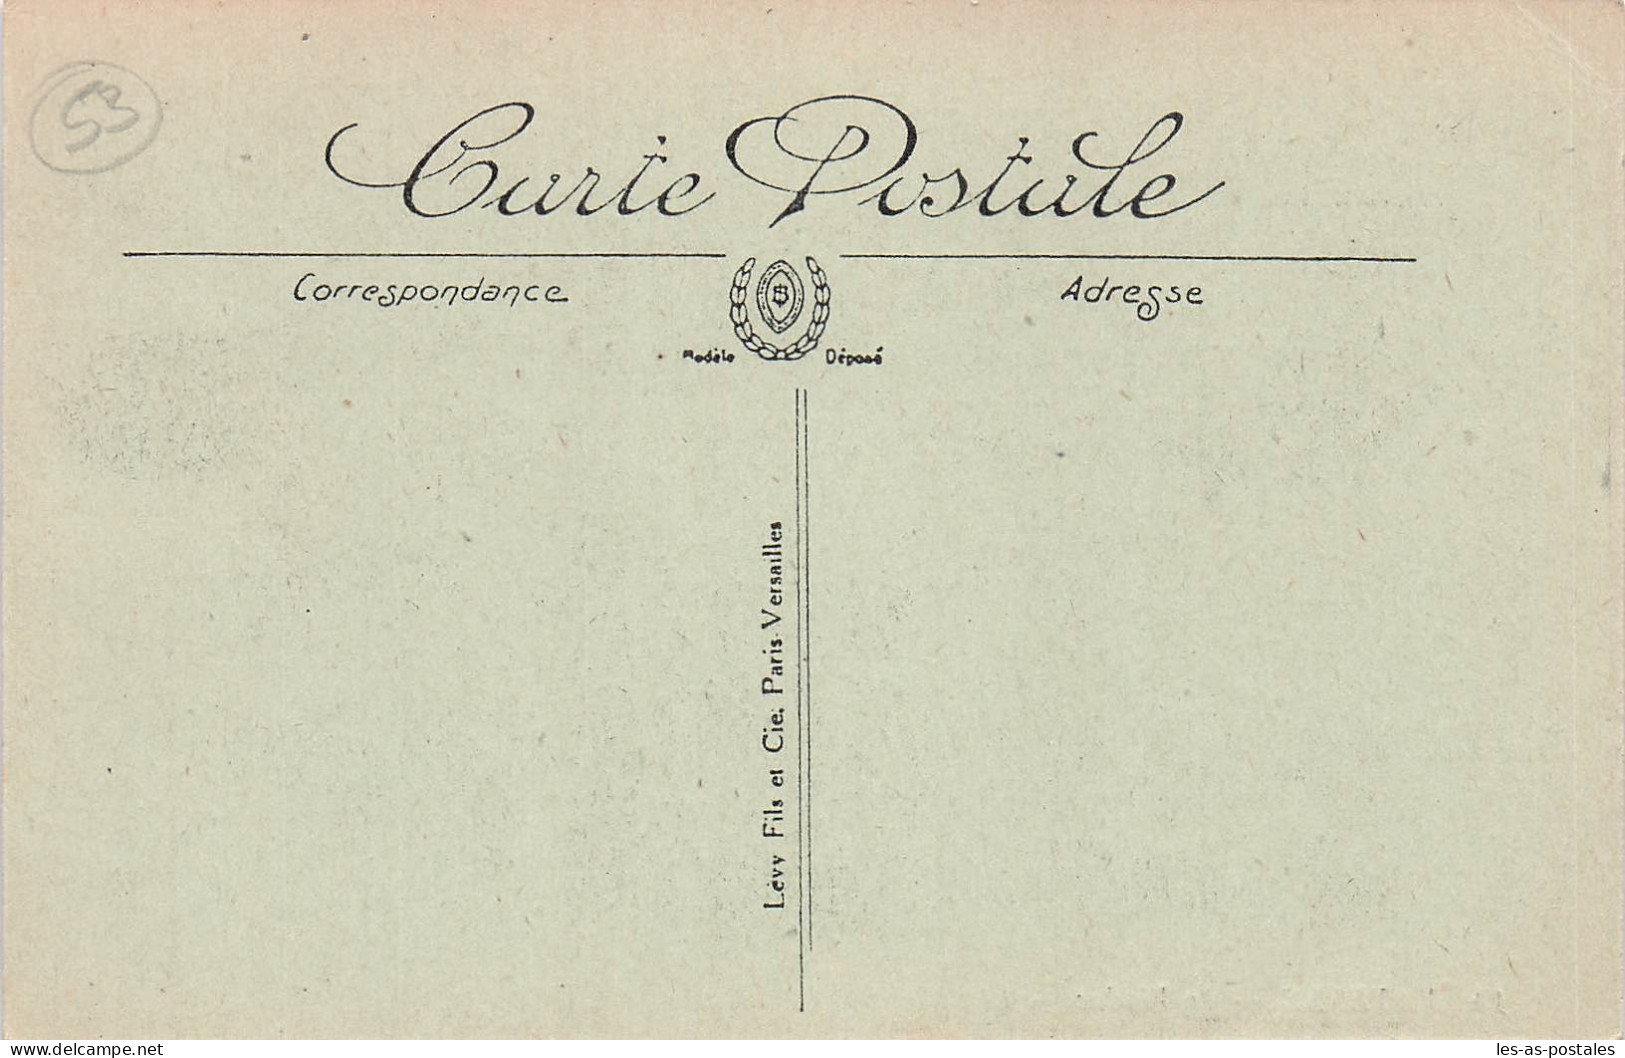 53
Carte Postale
Correspondance
Adresse
Modèle
Déposé
Lévy Fils et Cie. Paris-Versailles
www.delcampe.net
les-as-postales